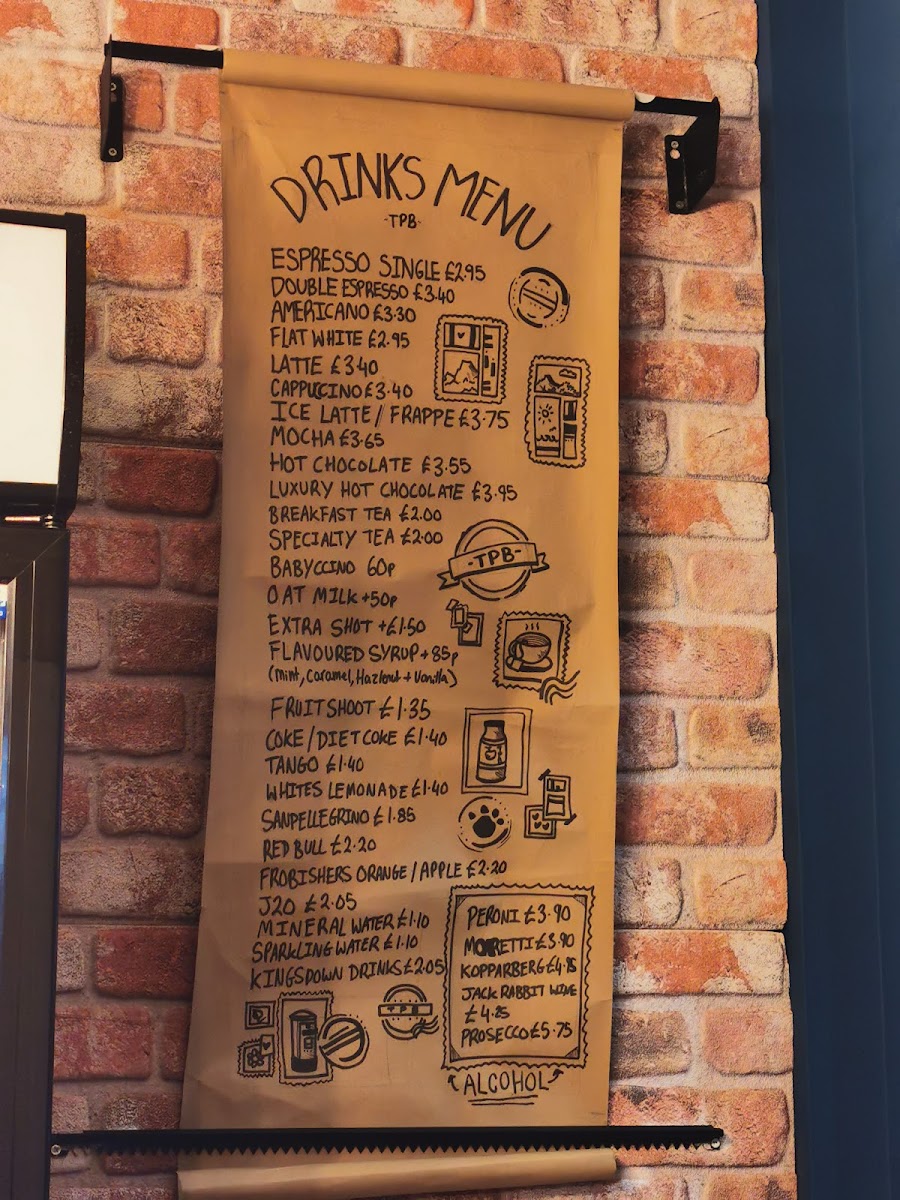 DRINKS MENU
-TPB-
ESPRESSO SINGLE £2.95
DOUBLE ESPRESSO £3.40
AMERICANO £3.30
FLAT WHITE £2.95
LATTE £3.40
CAPPUCCINO £3.40
ICE LATTE / FRAPPE £3.75
MOCHA £3.65
HOT CHOCOLATE £3.55
LUXURY HOT CHOCOLATE £3.95
BREAKFAST TEA £2.00
SPECIALTY TEA £2.00
-TPB-
BABYCCINO 60p
OAT MILK +50p
EXTRA SHOT +£1.50
FLAVOURED SYRUP + 85p
(mint, Caramel, Hazlenut + Vanilla)
FRUITSHOOT £1.35
COKE / DIET COKE £1.40
TANGO £1.40
WHITES LEMONADE £1.40
SANPELLEGRINO £1.85
RED BULL £2.20
FROBISHERS ORANGE / APPLE £2.20
J20 £2.05
MINERAL WATER £1.10
SPARKLING WATER £1.10
KINGSDOWN DRINKS £2.05
TPB
PERONI £3.90
MORETTI £3.90
KOPPARBERG £4.95
JACK RABBIT WINE
£4.25
PROSECCO £5.75
ALCOHOL